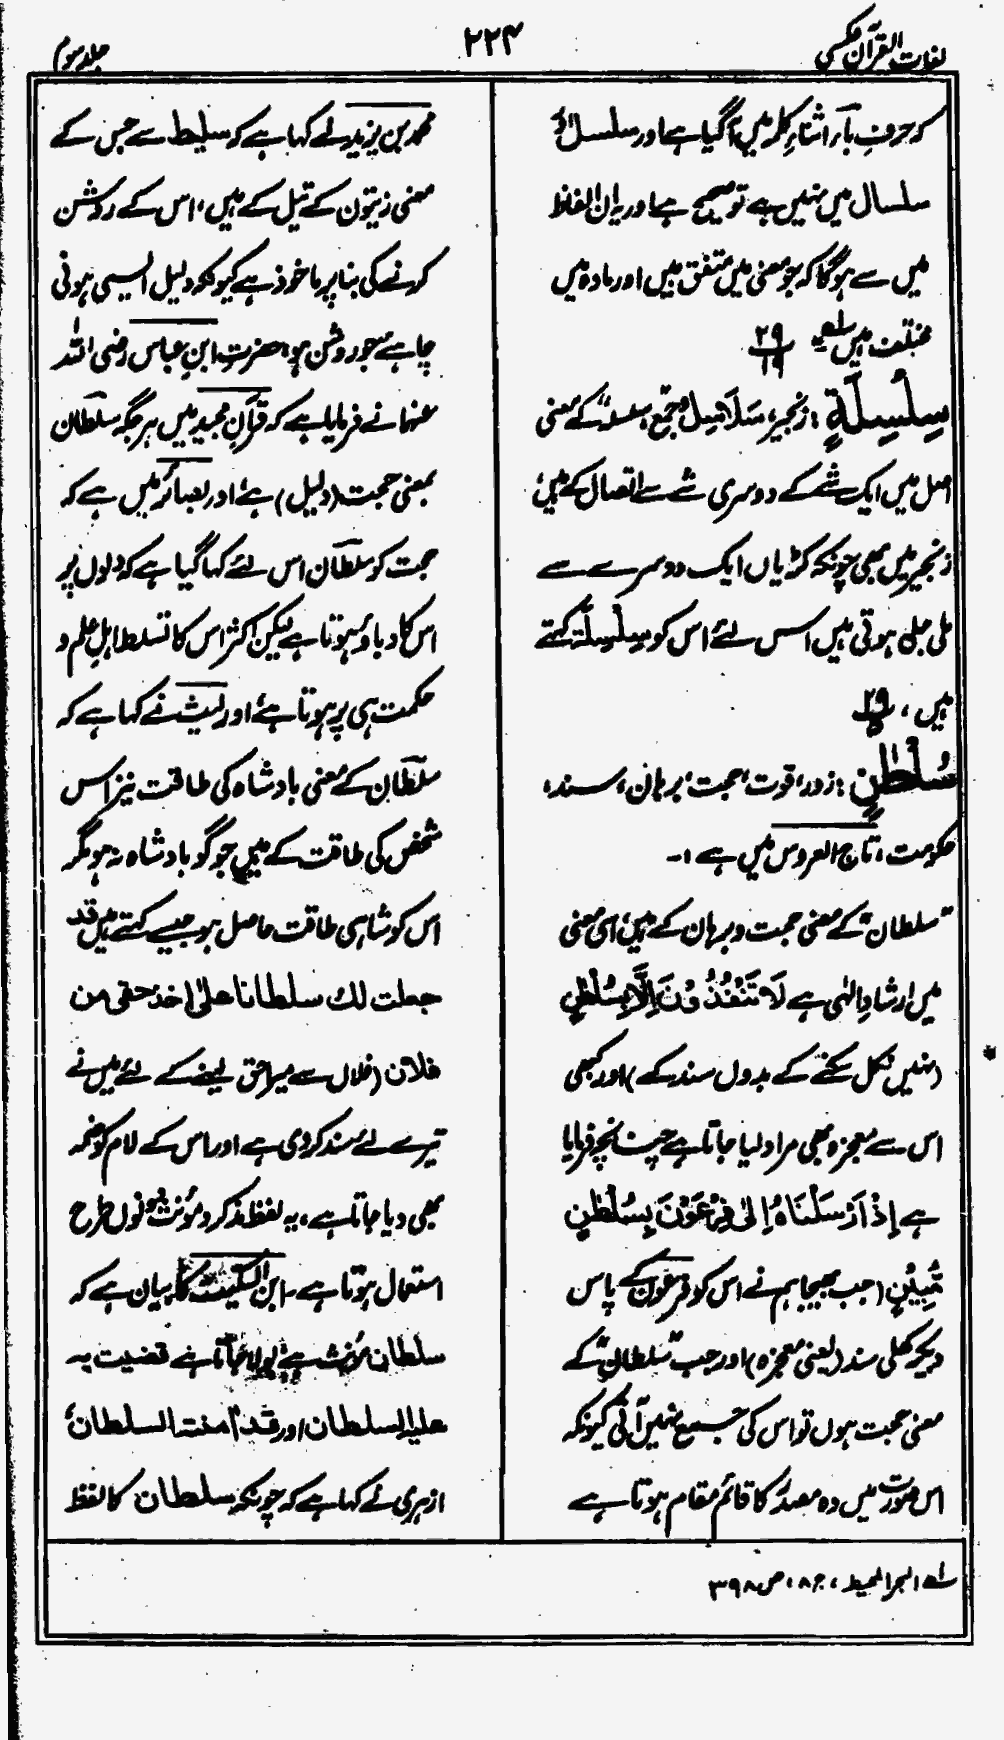 لغات القرآن عکسی
۲۲۴
جلد سوم
کہ حرفِ بآء اثناءِ کلمہ میں آگیا ہے اور سلسل اگر
سلسال میں نہیں ہے تو صحیح ہے اور یہ ان الفاظ
میں سے ہوگا کہ جو معنی میں متفق ہیں اور مادہ میں
مختلف ہیں لہ ۲۹/۱۹
سِلْسِلَةٍ: زنجیر، سَلَاسِلُ جمع، سلسلہ کے معنی
اصل میں ایک شے کے دوسری شے سے اتصال کے ہیں؛
زنجیر میں بھی چونکہ کڑیاں ایک دوسرے سے
ملی جلی ہوتی ہیں اس لئے اس کو سِلْسِلَة کہتے
ہیں، ۲۹/۵
سُلْطٰنٍ: زور، قوت، حجت، برہان، سند،
حکومت، تاج العروس میں ہے :۔
"سلطان" کے معنی حجت و برہان کے ہیں، اسی معنی
میں ارشادِ الٰہی ہے لَا تَنْفُذُوْنَ اِلَّا بِسُلْطٰنٍ
(نہیں نکل سکنے کے بدون سند کے) اور کبھی
اس سے معجزہ بھی مراد لیا جاتا ہے چنانچہ فرمایا
ہے اِذْ اَرْسَلْنَاہُ اِلٰی فِرْعَوْنَ بِسُلْطٰنٍ
مُّبِیْنٍ (جب بھیجا ہم نے اس کو فرعون کے پاس
دیکر کھلی سند (یعنی معجزہ) اور جب "سلطان" کے
معنی حجت ہوں تو اس کی جمع نہیں آتی کیونکہ
اس صورت میں وہ مصدر کا قائم مقام ہوتا ہے
محمد بن یزید نے کہا ہے کہ سلیط سے جس کے
معنی زیتون کے تیل کے ہیں، اس کے روشن
کرنے کی بنا پر ماخوذ ہے کیونکہ دلیل ایسی ہونی
چاہئے جو روشن ہو، حضرت ابن عباس رضی اللہ
عنہما نے فرمایا ہے کہ قرآن مجید میں ہر جگہ سلطان
بمعنی حجت (دلیل) ہے، اور بصائر میں ہے کہ
حجت کو سلطان اس لئے کہا گیا ہے کہ دلوں پر
اس کا دباؤ ہوتا ہے لیکن اکثر اس کا تسلط اہلِ علم و
حکمت ہی پر ہوتا ہے، اور لیث نے کہا ہے کہ
سلطان کے معنی بادشاہ کی طاقت نیز اس
شخص کی طاقت کے ہیں جو گو بادشاہ نہ ہو مگر
اس کو شاہی طاقت حاصل ہو جیسے کہتے ہیں قد
جعلت لك سلطانا علیٰ اخذ حقی من
فلان (فلاں سے میرا حق لینے کے لئے میں نے
تیرے لئے سند کر دی ہے اور اس کے لام کو ضمہ
بھی دیا جاتا ہے، یہ لفظ مذکر و مؤنث دونوں طرح
استعمال ہوتا ہے۔ ابن السکیت کا بیان ہے کہ
سلطان مؤنث ہے بولا جاتا ہے قضیت بہ
علیہ السلطان اور قد اٰمنتہ السلطان،
ازہری نے کہا ہے کہ چونکہ سلطان کا لفظ
لہ البحر المحیط، ج ۸، ص ۳۹۸